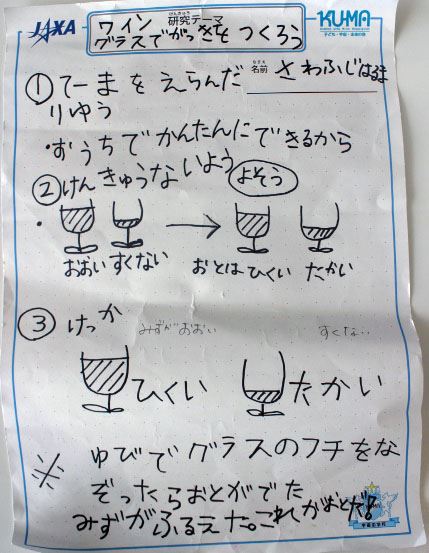 JAXA
KU-MA
子ども・宇宙・未来の会
けんきゅう
研究テーマ
ワイン
グラスでがっきをつくろう
なまえ
名前 さわふじはるま
①てーまをえらんだ
りゆう
・おうちでかんたんにできるから
②けんきゅうないよう よそう
・
おおい すくない → おとは ひくい たかい
③けっか
みずがおおい すくない
ひくい たかい
※ ゆびでグラスのフチをな
ぞったらおとがでた
みずがふるえた。これがおとだ!
宇宙の学校